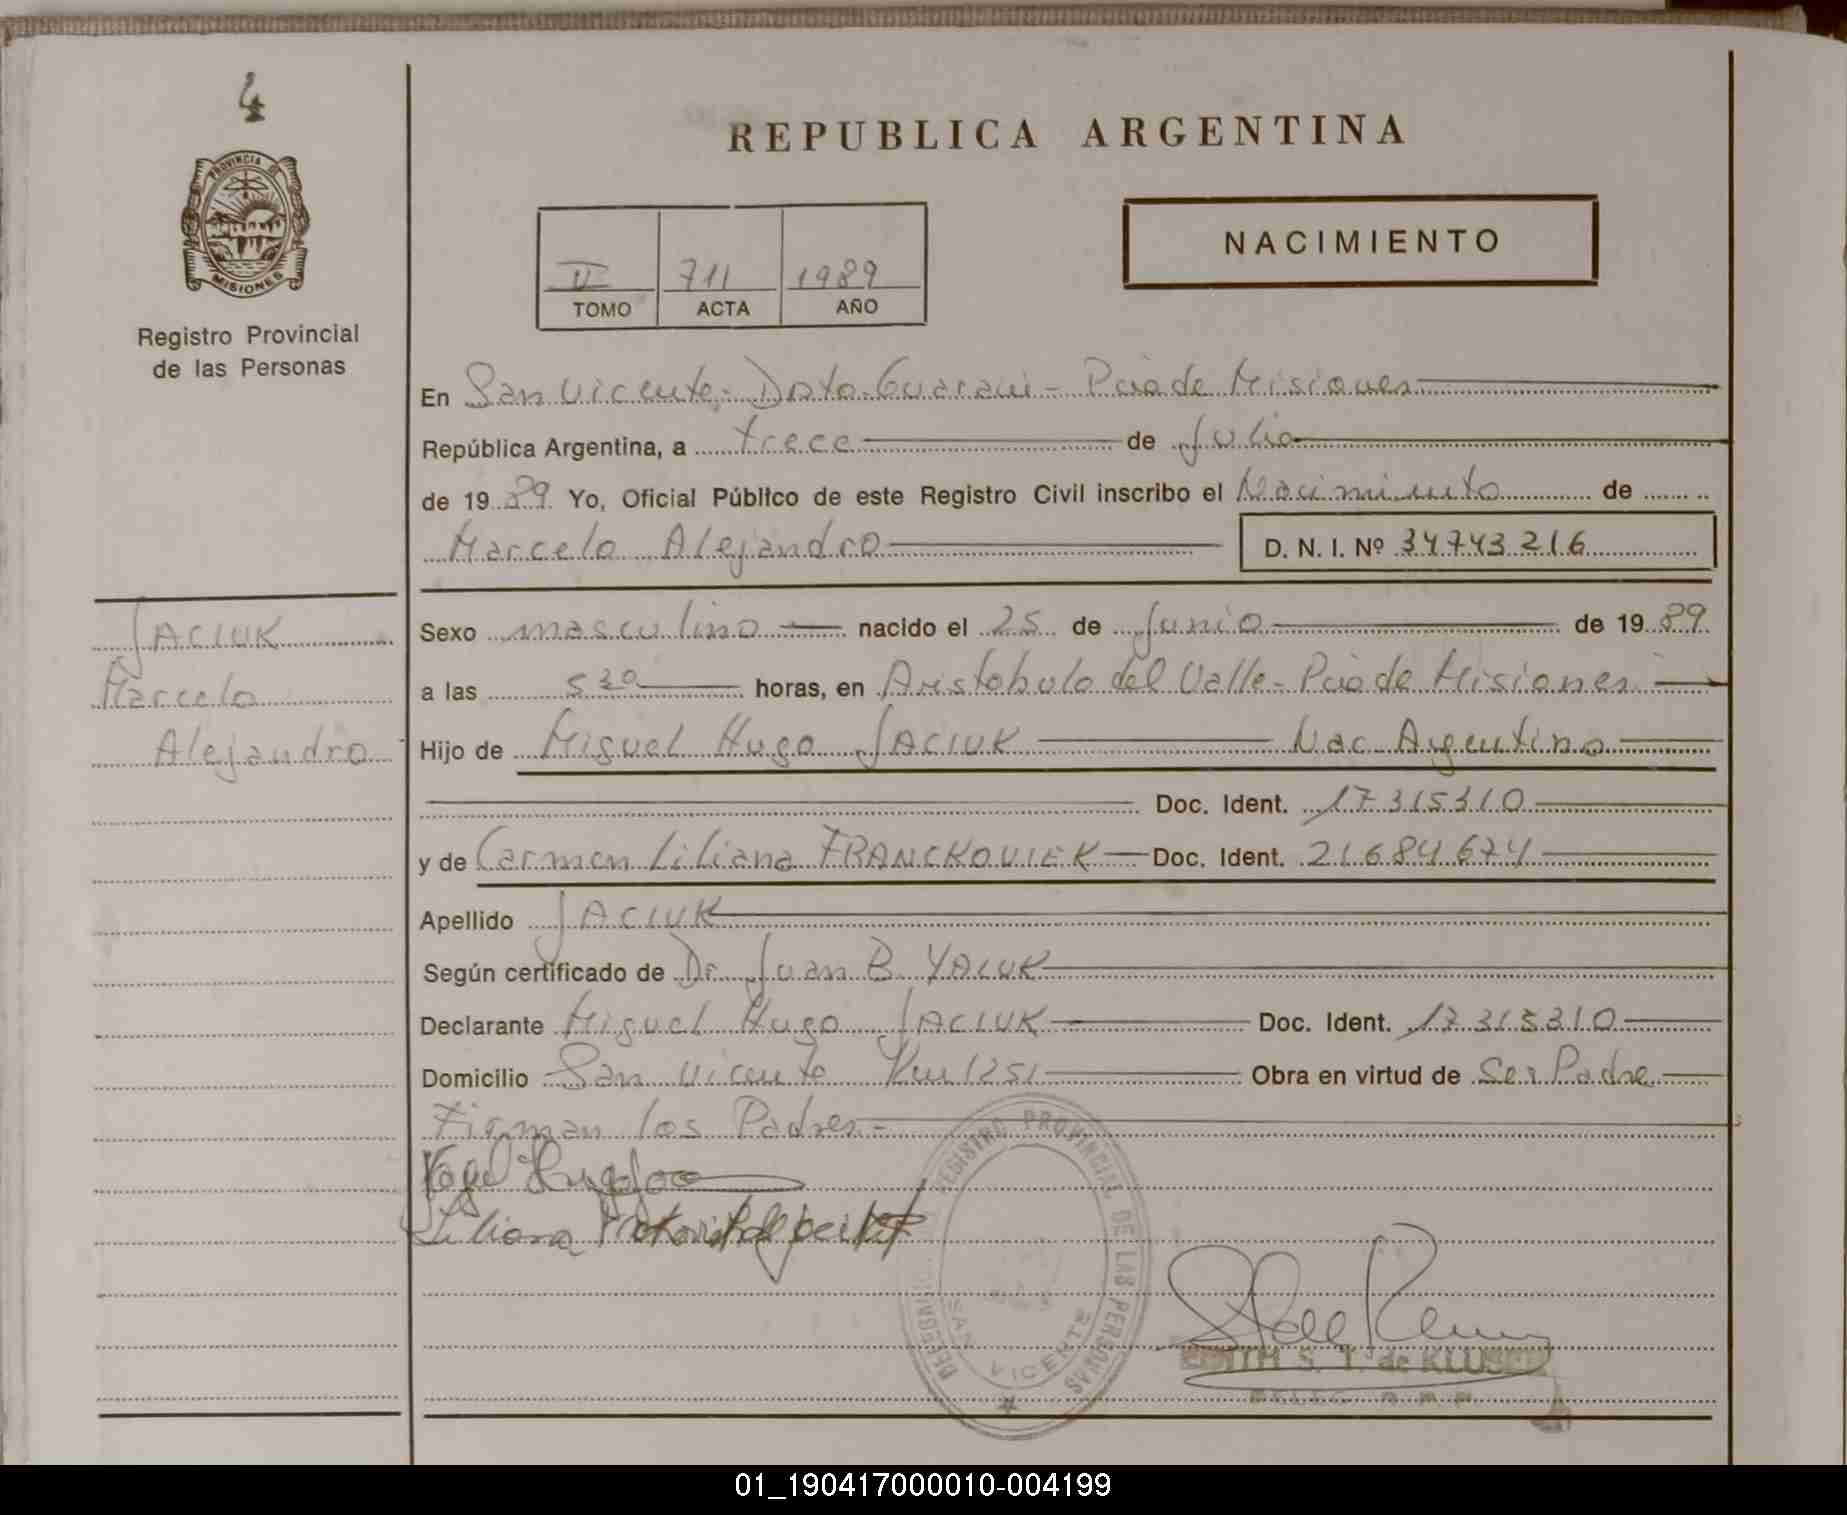 4
PROVINCIA DE
MISIONES
Registro Provincial
de las Personas
REPUBLICA ARGENTINA
NACIMIENTO
II 711 1989
TOMO ACTA AÑO
En San Vicente - Dpto. Guaraní - Pcia de Misiones
República Argentina, a trece de Julio
de 1989 Yo, Oficial Público de este Registro Civil inscribo el Nacimiento de
Marcelo Alejandro D. N. I. Nº 34743216
JACIUK
Marcelo
Alejandro
Sexo masculino nacido el 25 de Junio de 1989
a las 530 horas, en Aristobulo del Valle - Pcia de Misiones
Hijo de Miguel Hugo JACIUK Nac. Argentino
Doc. Ident. 17315310
y de Carmen Liliana FRANCKOVIEK Doc. Ident. 21684674
Apellido JACIUK
Según certificado de Dr. Juan B. YACUK
Declarante Miguel Hugo JACIUK Doc. Ident. 17315310
Domicilio San Vicente Km 1251 Obra en virtud de Ser Padre
Firman los Padres -
Liliana
REGISTRO PROVINCIAL DE LAS PERSONAS
SAN VICENTE
S. T. de KLUSE
01_190417000010-004199